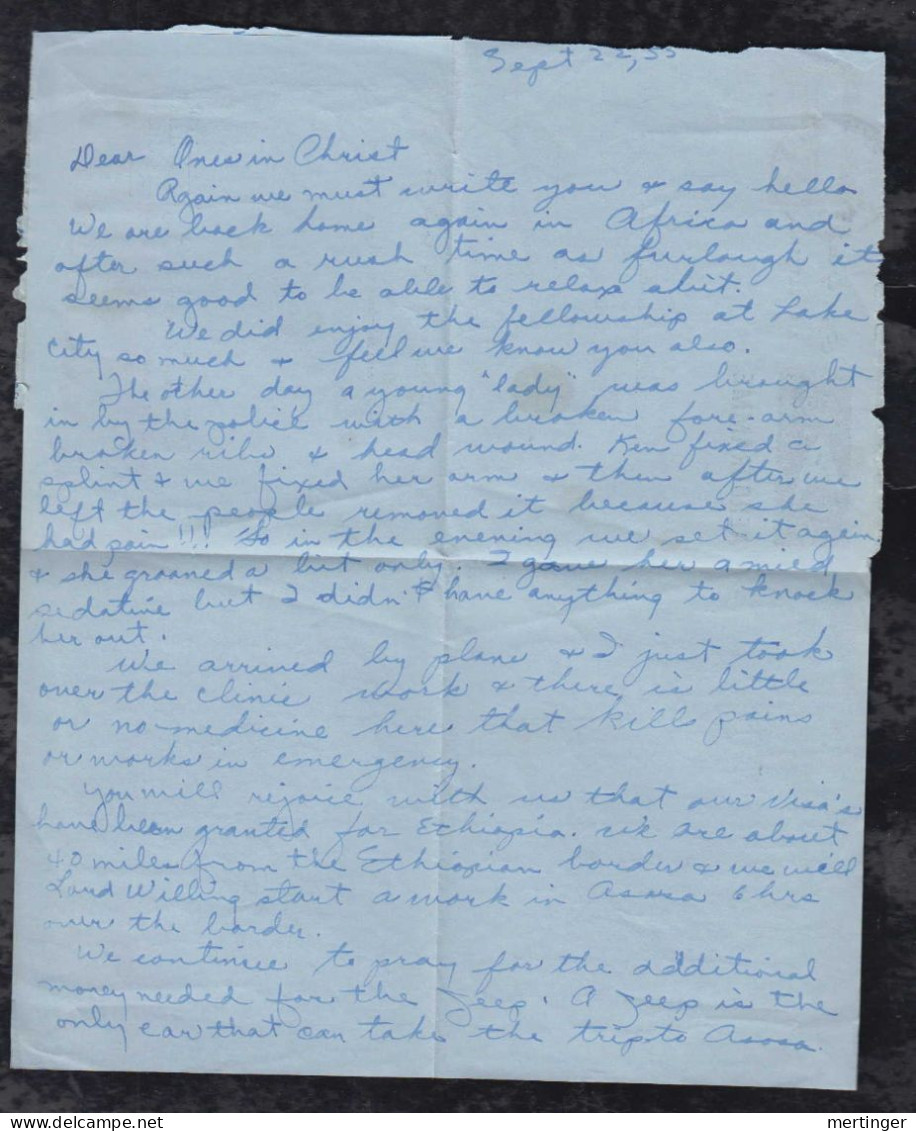 Sept 22, 55
Dear Ones in Christ
Again we must write you & say hello
We are back home again in Africa and
after such a rush time as furlough it
seems good to be able to relax abit.
We did enjoy the fellowship at Lake
City so much & feel we know you also.
The other day a young "lady" was brought
in by the police with a broken fore-arm
broken ribs & head wound. Ken fixed a
splint & we fixed her arm & then after we
left the people removed it because she
had pain!!! So in the evening we set it again
& she groaned a bit only. I gave her a mild
sedative but I didn't have anything to knock
her out.
We arrived by plane & I just took
over the clinic work & there is little
or no-medicine here that kills pains
or works in emergency.
You will rejoice with us that our Visa's
have been granted for Ethiopia. We are about
40 miles from the Ethiopian border & we will
Lord Willing start a work in Asosa 6 hrs
over the border.
We continue to pray for the additional
money needed for the Jeep. A Jeep is the
only car that can take the trip to Asosa.
mertinger